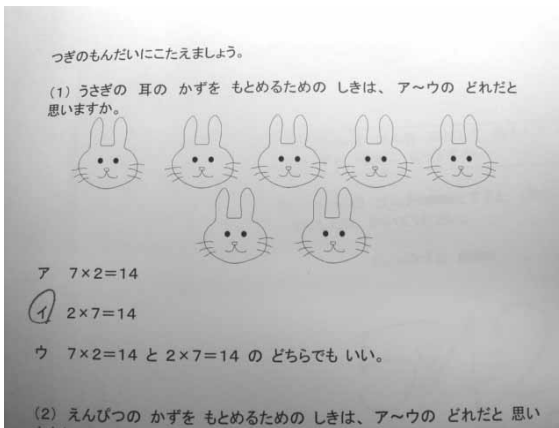 つぎのもんだいにこたえましょう。
(1) うさぎの 耳の かずを もとめるための しきは、ア～ウの どれだと
思いますか。
ア 7×2=14
イ 2×7=14
ウ 7×2=14 と 2×7=14 の どちらでも いい。
(2) えんぴつの かずを もとめるための しきは、ア～ウの どれだと 思い